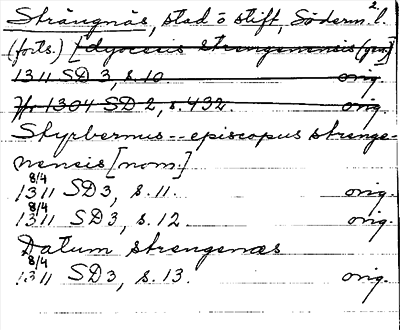 Strängnäs, stad o stift, Söderm. l. 2
(forts.) [dyocesis strengenensis (gen)]
1311 SD 3, s. 10. orig.
Hr 1304 SD 2, s. 432. orig.
Styrbernus -- episcopus strenge-
nensis [nom.]
8/4
1311 SD 3, s. 11. orig.
8/4
1311 SD 3, s. 12 orig.
Datum strengenæs
8/4
1311 SD 3, s. 13. orig.